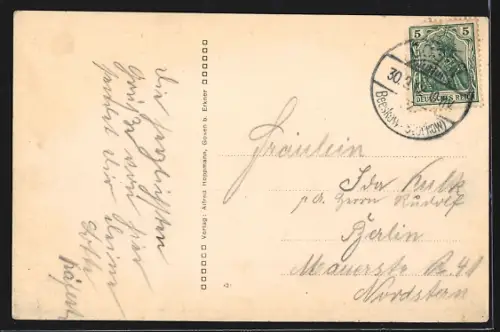 Die herzlichsten
Grüße von hier
sendet Dir Deine
Lotte
Verlag: Alfred Hoppmann, Gosen b. Erkner
5 5
DEUTSCHES REICH
30.3.
Beeskow-Storkow
Fräulein
Ida Kulk
p.A. Herrn Rudolf
Berlin
Mauerstr. R. 41
Nordstern